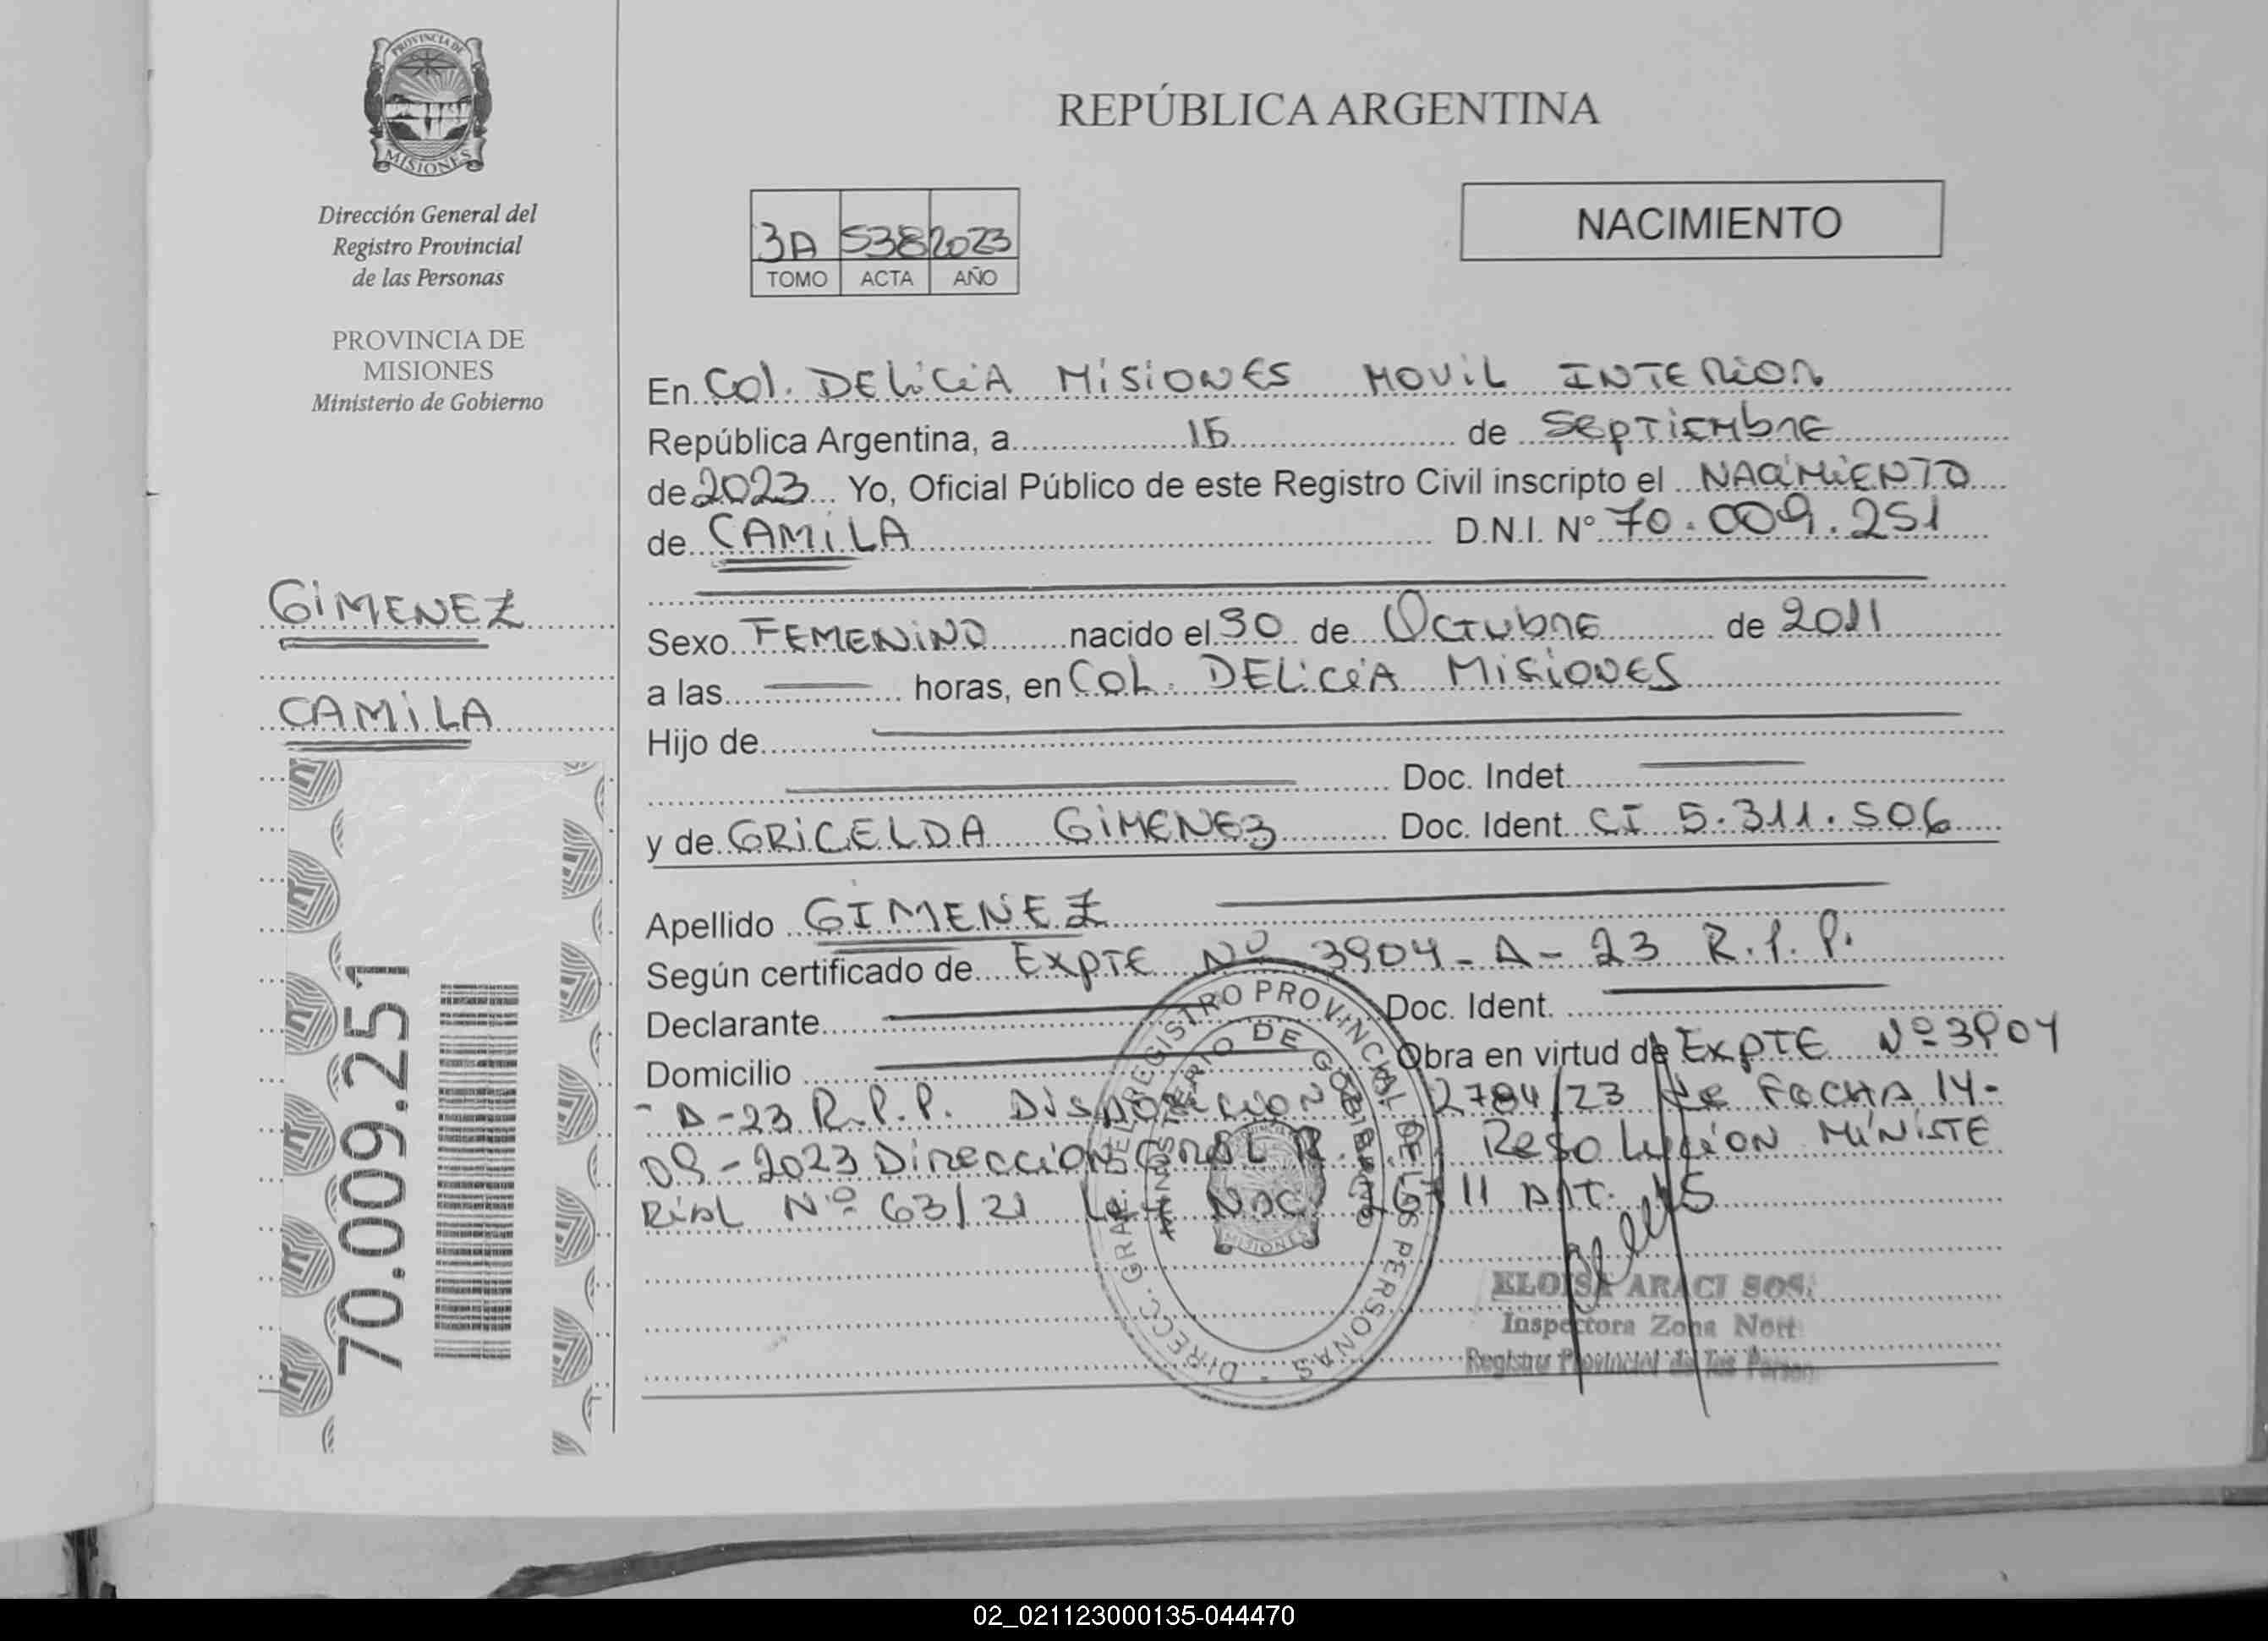 PROVINCIA DE
MISIONES
Dirección General del
Registro Provincial
de las Personas
PROVINCIA DE
MISIONES
Ministerio de Gobierno
GIMENEZ
CAMILA
70.009.251
REPÚBLICA ARGENTINA
3A 538 2023
TOMO ACTA AÑO
NACIMIENTO
En Col. DELiCiA MiSiONES MOViL INTERiOR
República Argentina, a 15 de SEPTiEMbRE
de 2023 Yo, Oficial Público de este Registro Civil inscripto el NACiMiENTO
de CAMiLA D.N.I. N° 70.009.251
Sexo FEMENiNO nacido el 30 de OCTUbRE de 2011
a las horas, en COL. DELiCiA MiSiONES
Hijo de
Doc. Indet.
y de GRiCELDA GiMENEZ Doc. Ident. CI 5.311.506
Apellido GIMENEZ
Según certificado de EXPTE Nº 3904-A-23 R.P.P.
Declarante Doc. Ident.
Domicilio Obra en virtud de EXPTE Nº 3904
-A-23 R.P.P. DISPOSICION 2784/23 de FECHA 14-
09-2023 DIRECCION GRAL R. P. RESOLUCION MiNiSTE
RiAL Nº 63/21 LEY NAC 26711 ART. 15
DIRECC. GRAL. DEL REGISTRO PROVINCIAL DE LAS PERSONAS -
MINISTERIO DE GOBIERNO
MISIONES
ELOISA ARACI SOS
Inspectora Zona Nort
Registro Provincial de las Person
02_021123000135-044470